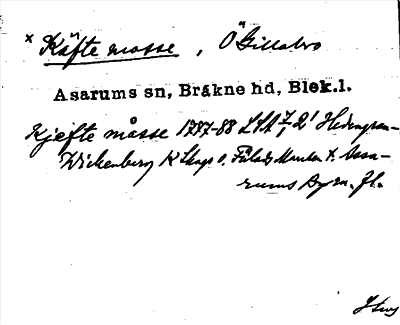 x Käfte mosse, Ö Gillabro
Asarums sn, Bräkne hd, Blek.l.
Kjefte måsse 1787-88 LSA 7, 2' Hedengran-
Wickenberg K Skogs o. Fälads Marken t. Asa-
rums Byn. Jl.